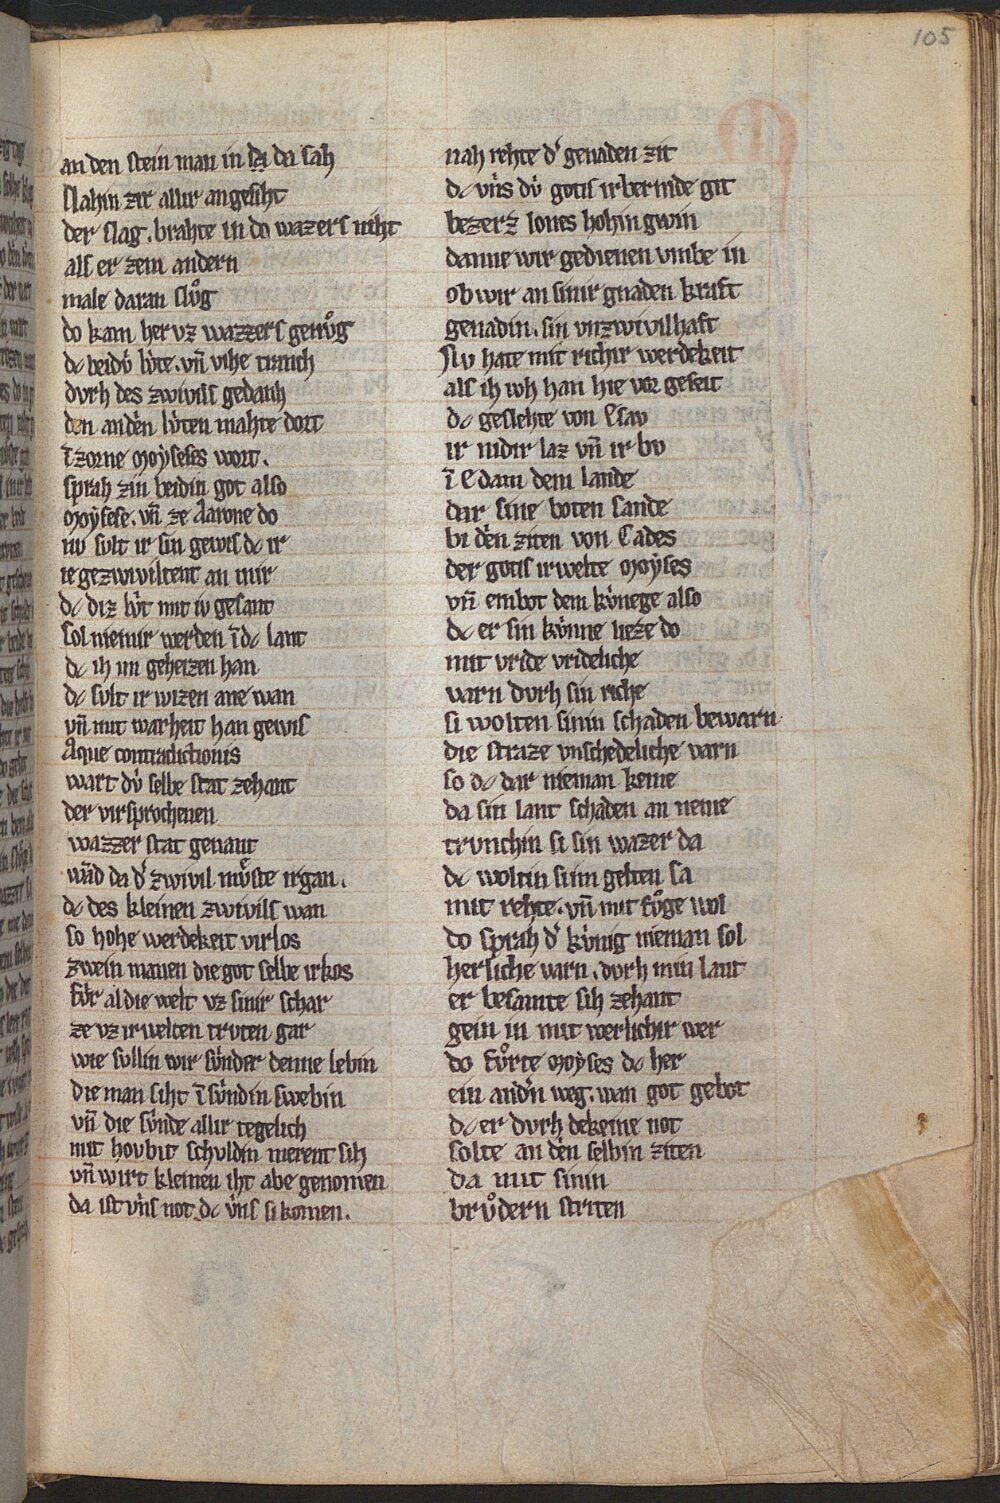 105
an den stein man in sa da sah
slahin zir allur angesiht
der slag. brahte in do wazers niht
als er zem andern
male daran slůg
do kam her vz wazzers genůg
dc beidv́ lv́te. vn̄ vihe tranch
dvrh des zwivils gedanch
den ande̅n lv́ten mahte dort
ī zorne moẏseses wort.
sprah zin beidin got also
moẏsese. vn̄ ze Aarone do
nv svlt ir sin gewis dc ir
ie gezwiviltent an mir
dc diz lv́t mit iv gesant
sol niemir werden ī dc lant
dc ih im geheizen han
dc svlt ir wizen ane wan
vn̄ mit warheit han gewis
Aque contradictionis
wart dv́ selbe stat zehant
der virsprochenen
wazzer stat genant
wān da d' zwivil mv̊ste irgan.
dc des kleinen zwivils wan
so hohe werdekeit virlos
zwein manen die got selbe irkos
fv́r al die welt vz sinir schar
ze vz irwelten trvten gar
wie svllin wir sv́nder denne lebin
die man siht ī sv́ndin swebin
vn̄ die sv́nde allir tegelich
mit hovbit schvldin merent sih
vn̄ wirt kleinen iht abe genomen
da ist vn̄s not dc vn̄s si komen.
nah rehte d' genaden zit
dc vn̄s dv́ gotis irbermde git
bezerz lones hohin gwin
danne wir gedienen vmbe in
ob wir an sinir gnaden kraft
genadin. sin vnzwivilhaft
Nv hate mit richir werdekeit
als ih ivh han hie vor geseit
dc geslehte von Esav
ir nidir laz vn̄ ir bv
ī Edam dem lande
dar sine boten sande
bi den ziten von Cades
der gotis irwelte moẏses
vn̄ enbot dem kv́nege also
dc er sin kv́nne lieze do
mit vride vrideliche
varn dvrh sin riche
si wolten sinin schaden bewarn
die straze vnschedeliche varn
so dc dar nieman keme
da sin lant schaden an neme
trvnchin si sin wazer da
dc woltin si im gelten sa
mit rehte. vn̄ mit fůge wol
do sprah d' kv́nig nieman sol
herliche varn. dvrh min lant
er besamte sih zehant
gein in mit werlichir wer
do fůrte moẏses dc her
ein andn̄ weg. wan got gebot
dc er dvrh dekeine not
solte an den selbin ziten
da mit sinin
brůdern striten